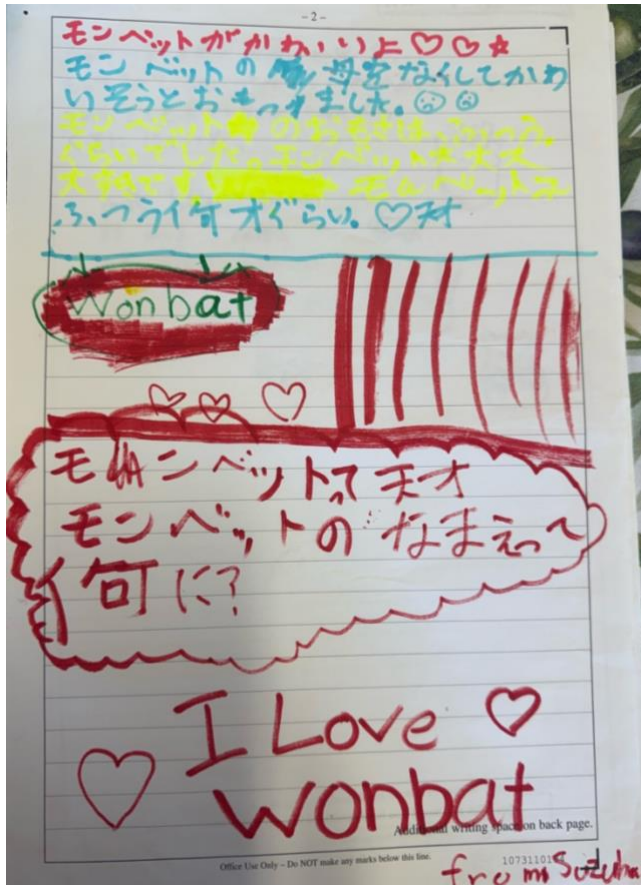 - 2 -
モンベットがかわいいよ♡♡☆
モンベットの母をなくしてかわ
いそうとおもいました。☹☹
モンベットのおもさは、ふつう
ぐらいでした。モンベット大大大
大すきです。モンベットは
ふつう何才ぐらい。♡天才
Wonbat
モンベットって天才
モンベットのなまえって
何に?
I Love
wonbat
Additional writing space on back page.
Office Use Only – Do NOT make any marks below this line.
from Suzuha